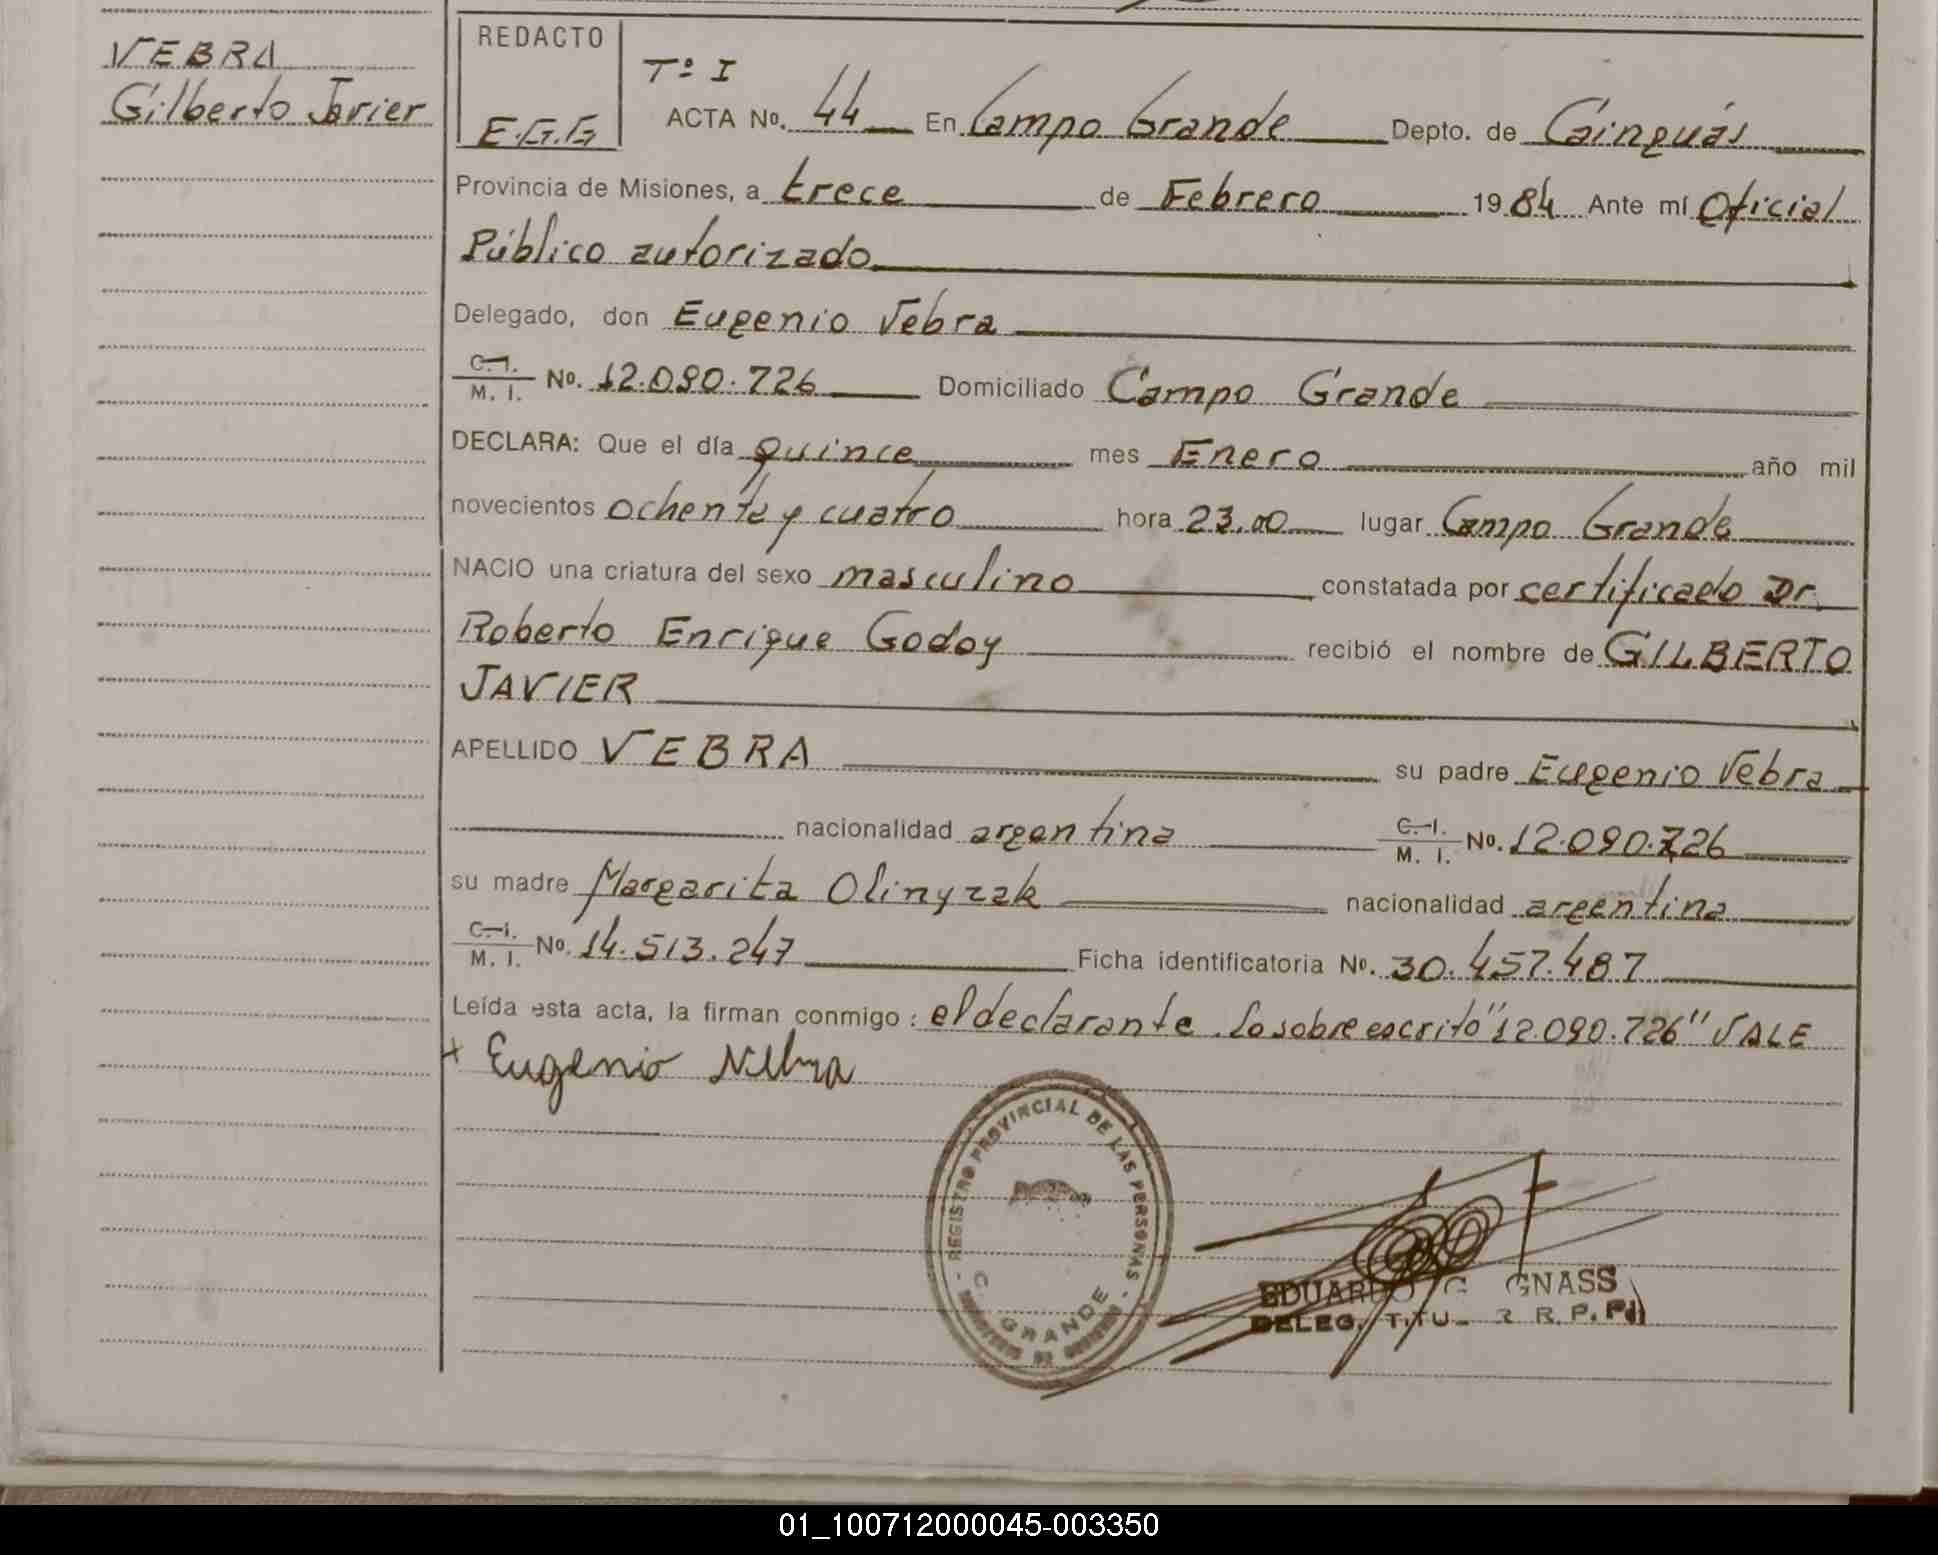 VEBRA
Gilberto Javier
REDACTO
E.G.G
Tº I
ACTA No. 44 En Campo Grande Depto. de Cainguás
Provincia de Misiones, a trece de Febrero 1984 Ante mí Oficial
Público autorizado
Delegado, don Eugenio Vebra
C.I. M. I. No. 12.090.726 Domiciliado Campo Grande
DECLARA: Que el día quince mes Enero año mil
novecientos ochenta y cuatro hora 23,00 lugar Campo Grande
NACIO una criatura del sexo masculino constatada por certificado Dr.
Roberto Enrique Godoy recibió el nombre de GILBERTO
JAVIER
APELLIDO VEBRA su padre Eugenio Vebra
nacionalidad argentina C.I. M. I. No. 12.090.726
su madre Margarita Olinyzak nacionalidad argentina
C.I. M. I. No. 14.513.247 Ficha identificatoria No. 30.457.487
Leída esta acta, la firman conmigo: el declarante. Lo sobre escrito "12.090.726" VALE
x Eugenio Vebra
- REGISTRO PROVINCIAL DE LAS PERSONAS -
C. GRANDE
EDUARDO G. GNASS
DELEG. TITU R. P. P.
01_100712000045-003350